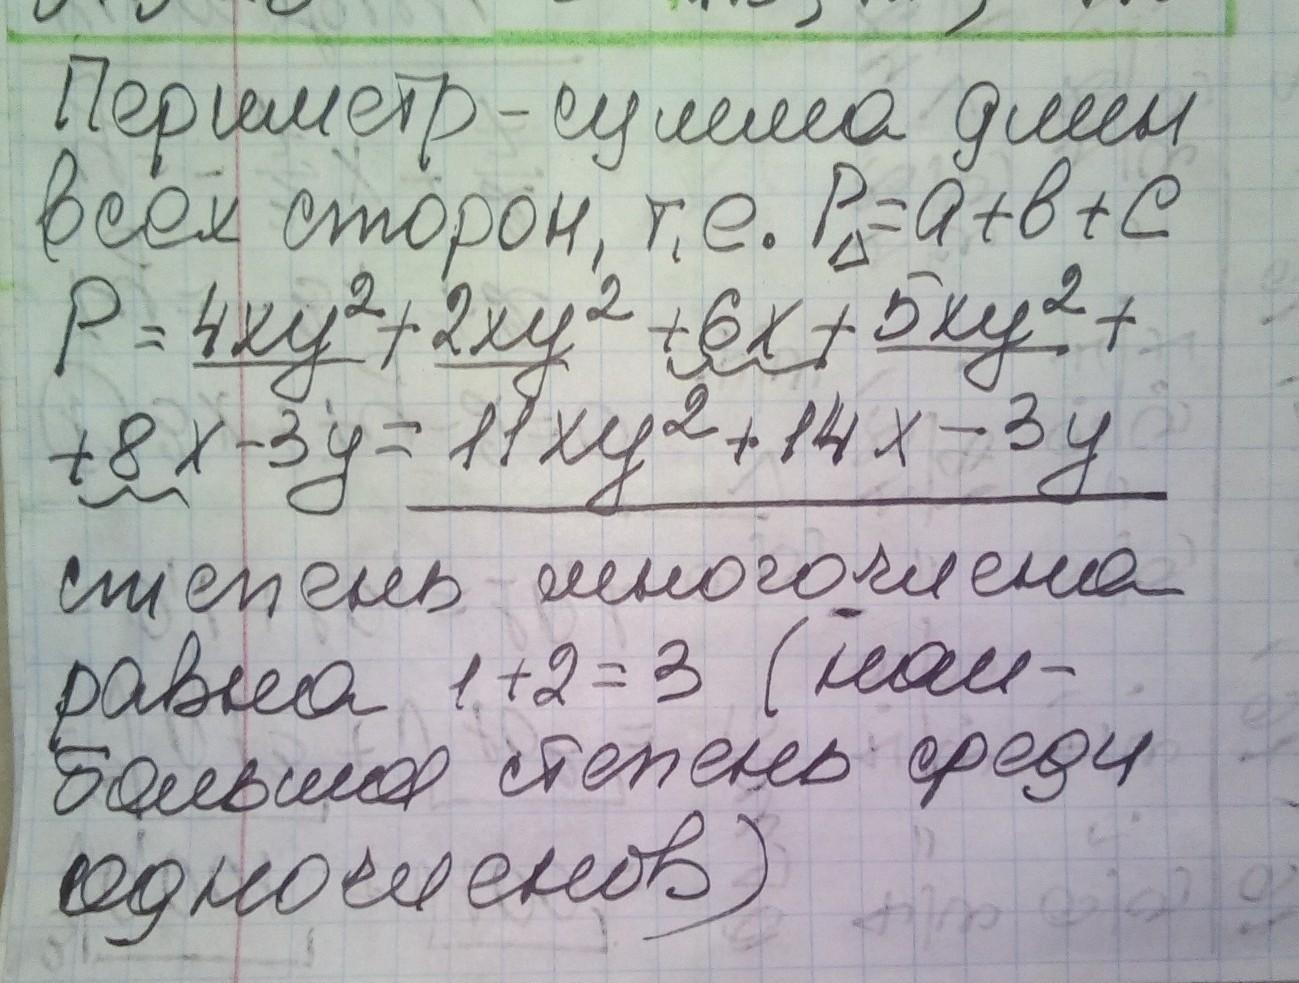 Периметр - сумма длин
всех сторон, т.е. P△=a+b+c
P=4xy²+2xy²+6x+5xy²+
+8x-3y=11xy²+14x-3y
степень многочлена
равна 1+2=3 (наи-
большая степень среди
одночленов)